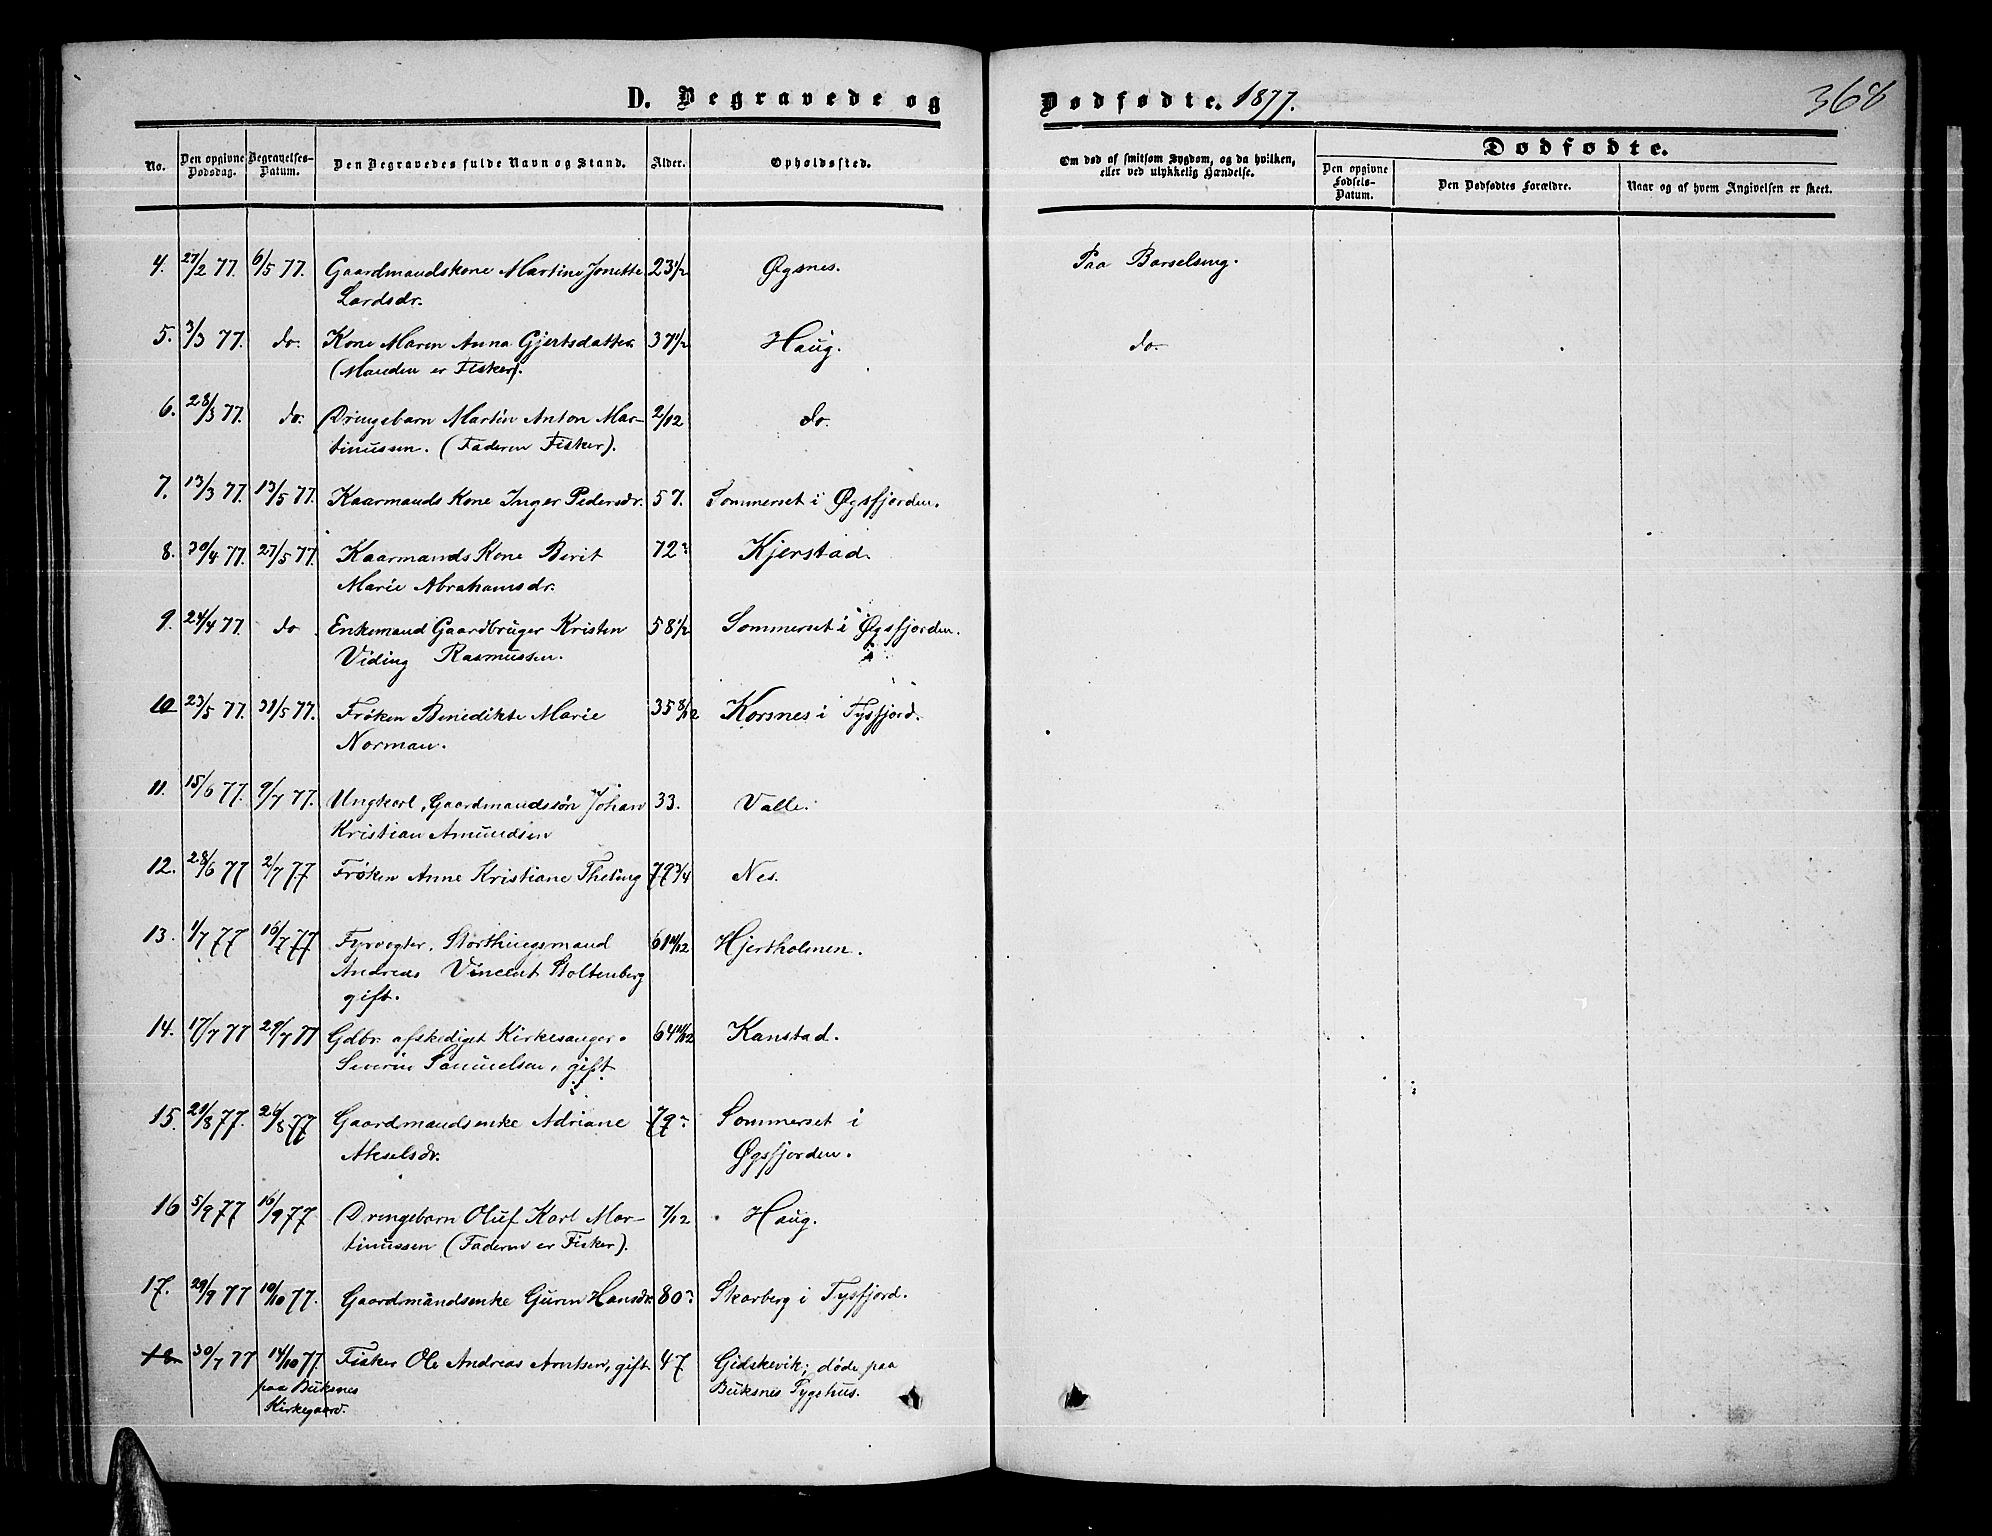 D. Begravede og Dødfødte. 1877. 368
Dødfødte.
No. Den opgivne Dødsdag. Begravelses-Datum. Den Begravedes fulde Navn og Stand. Alder. Opholdssted. Om død af smitsom Sygdom, og da hvilken, eller ved ulykkelig Hændelse. Den opgivne Fødsels-Datum. Den Dødfødtes Forældre. Naar og af hvem Angivelsen er skeet.
4. 27/2 77. 6/5 77. Gaardmandskone Martine Jonette 23 1/2 Øgsnes. Paa Barselseng.
Lardsdr.
5. 3/3 77. do. Kone Maren Anna Gjertsdatter 37 1/2 Haug. do.
(Manden er Fisker).
6. 28/3 77. do. Drengebarn Martin Anton Mar- 2/12 do.
tinussen. (Faderen Fisker).
7. 13/3 77. 13/5 77. Kaarmands Kone Inger Pedersdr. 57. Sommerset i Øgsfjorden.
8. 30/4 77. 27/5 77. Kaarmands Kone Berit 72 Kjerstad.
Marie Abrahamsdr.
9. 24/4 77. do. Enkemand Gaardbruger Kristen 58 1/2 Sommerset i Øgsfjorden.
Viding Rasmussen.
10 23/5 77. 31/5 77. Frøken Benedikte Marie 35 8/12 Korsnes i Tysfjord.
Norman.
11. 15/6 77. 9/7 77. Ungkarl, Gaardmandssøn Johan 33. Valle.
Kristian Amundsen
12. 28/6 77 2/7 77 Frøken Anne Kristiane Theting 79 3/4 Nes.
13. 1/7 77 16/7 77 Fyrvogter, Storthingsmand 61 11/12 Hjertholmen.
Andreas Vincent Stoltenberg
gift.
14. 17/7 77 29/7 77 Gdbr. afskediget Kirkesanger 64 11/12 Kanstad.
Severin Samuelsen, gift
15. 21/8 77. 26/8 77 Gaardmandsenke Adriane 79 Sommerset i
Akselsdr. Øgsfjorden.
16 5/9 77 16/9 77 Drengebarn Oluf Karl Mar- 7/12 Haug.
tinussen (Faderen er Fisker).
17. 29/9 77 10/10 77. Gaardmandsenke Guren Hansdr. 80 Skarberg i Tysfjord.
18 30/7 77 14/10 77. Fisker Ole Andreas Arntsen, gift 47 Gidskevik; døde paa
paa Buksnes Buksnes Sygehus.
Kirkegaard.